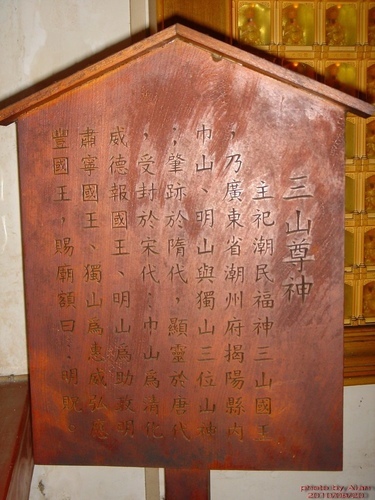 三山尊神
主祀潮民福神三山國王
，乃廣東省潮州府揭陽縣內
巾山、明山與獨山三位山神
；肇跡於隋代，顯靈於唐代
，受封於宋代：巾山為清化
威德報國王、明山為助政明
肅寧國王、獨山為惠威弘應
豐國王，賜廟額曰：明貺。